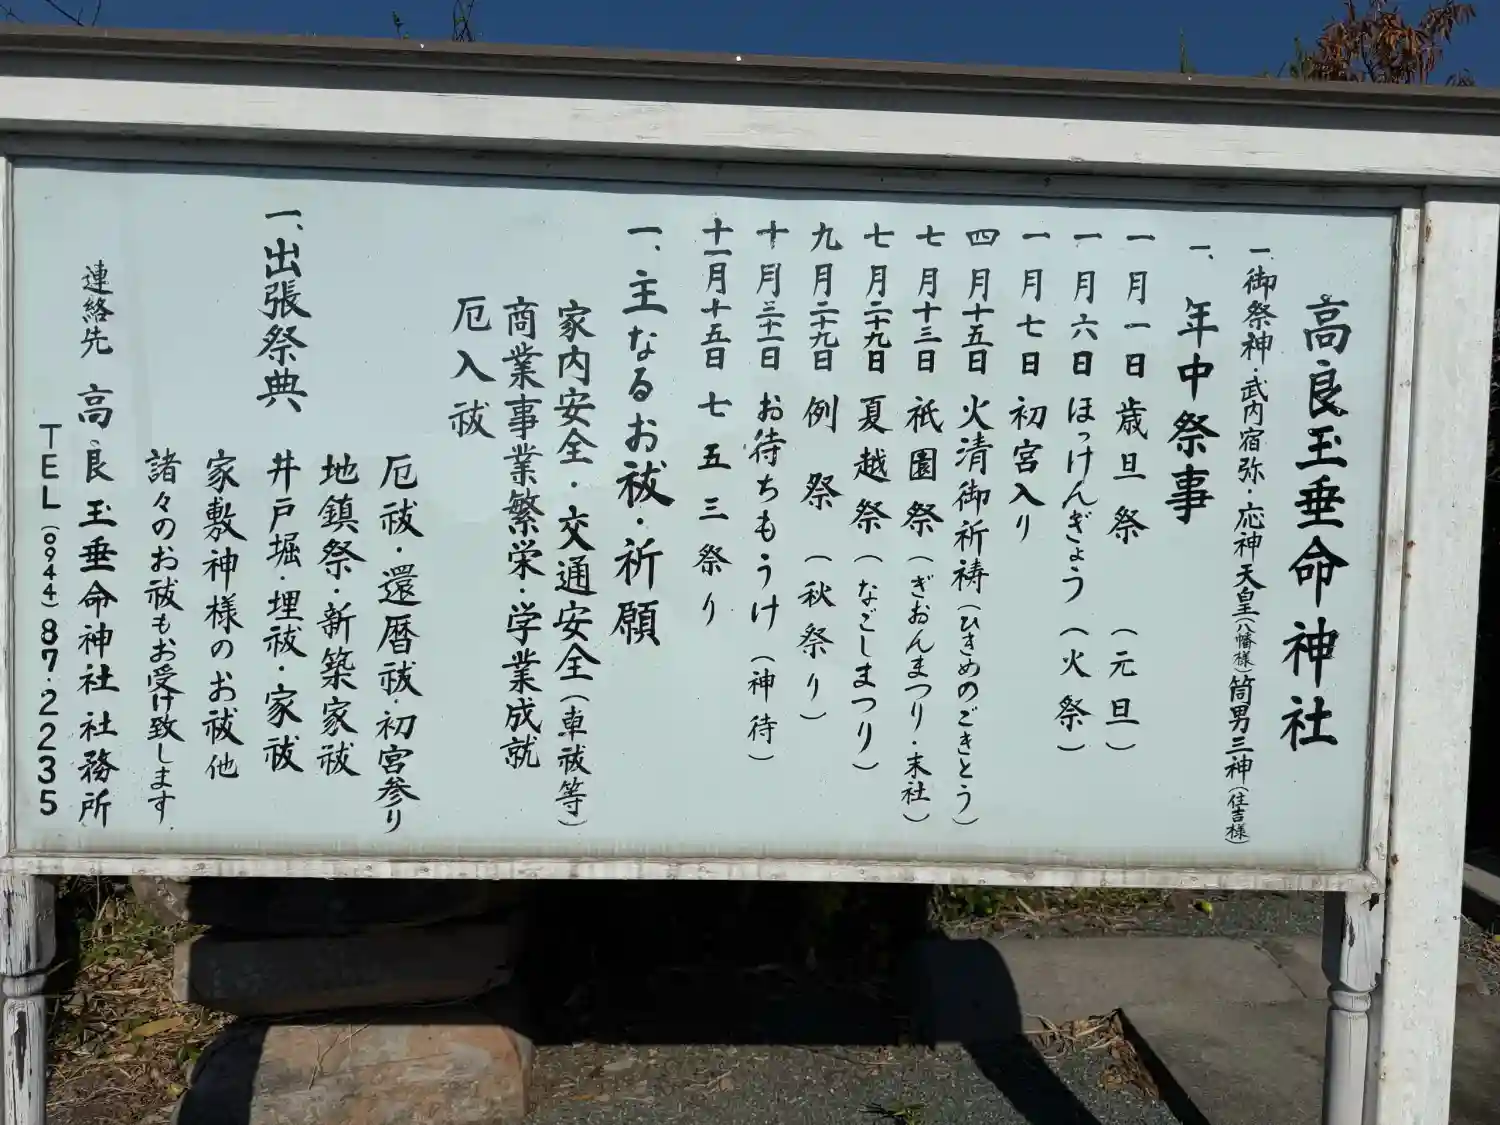 高良玉垂命神社
一、御祭神・武内宿弥・応神天皇(八幡様)筒男三神(住吉様)
一、年中祭事
一月一日歳旦祭(元旦)
一月六日ほっけんぎょう(火祭)
一月七日初宮入り
四月十五日火清御祈祷(ひきめのごきとう)
七月十三日祇園祭(ぎおんまつり・末社)
七月二十九日夏越祭(なごしまつり)
九月二十九日例祭(秋祭り)
十月三十一日お待ちもうけ(神待)
十一月十五日七五三祭り
一、主なるお祓・祈願
家内安全・交通安全(車祓等)
商業事業繁栄・学業成就
厄入祓
厄祓・還暦祓・初宮参り
一、出張祭典
地鎮祭・新築家祓
井戸堀・埋祓・家祓
家敷神様のお祓他
諸々のお祓もお受け致します
連絡先 高良玉垂命神社社務所
TEL(0944)87・2235